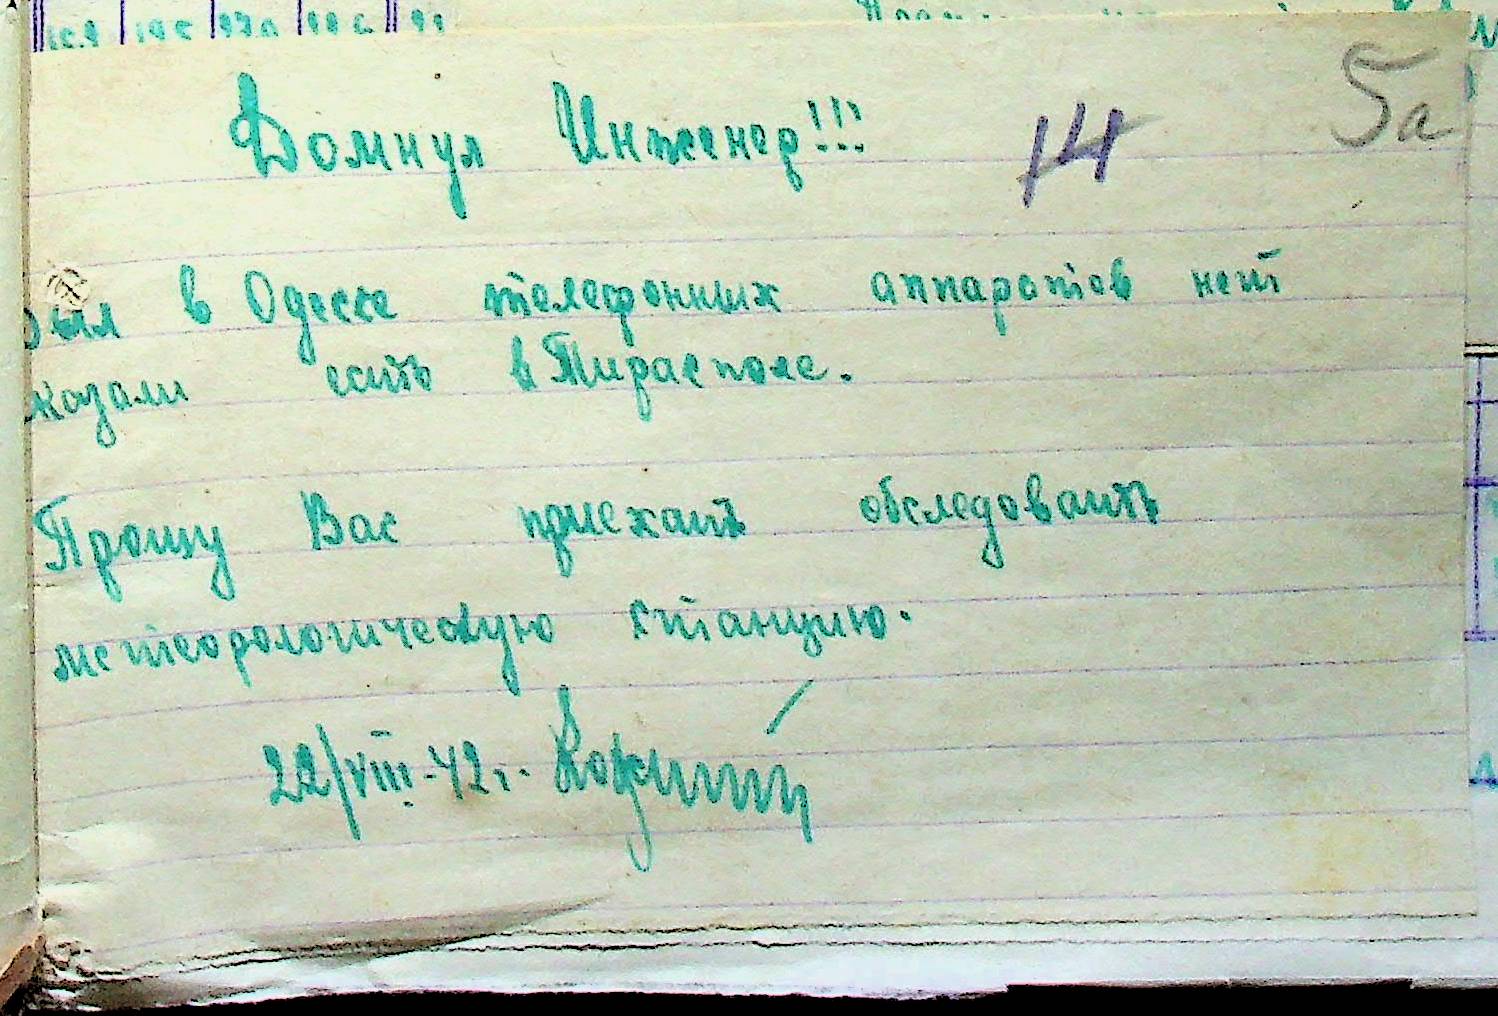 5а
Домнул Инженер!!! 14
был в Одессе телефонных аппаротов нет
сказали есить в Тирасполе.
Прошу Вас приехать обследовать
метеорологическую станцию.
22/VIII-42г.